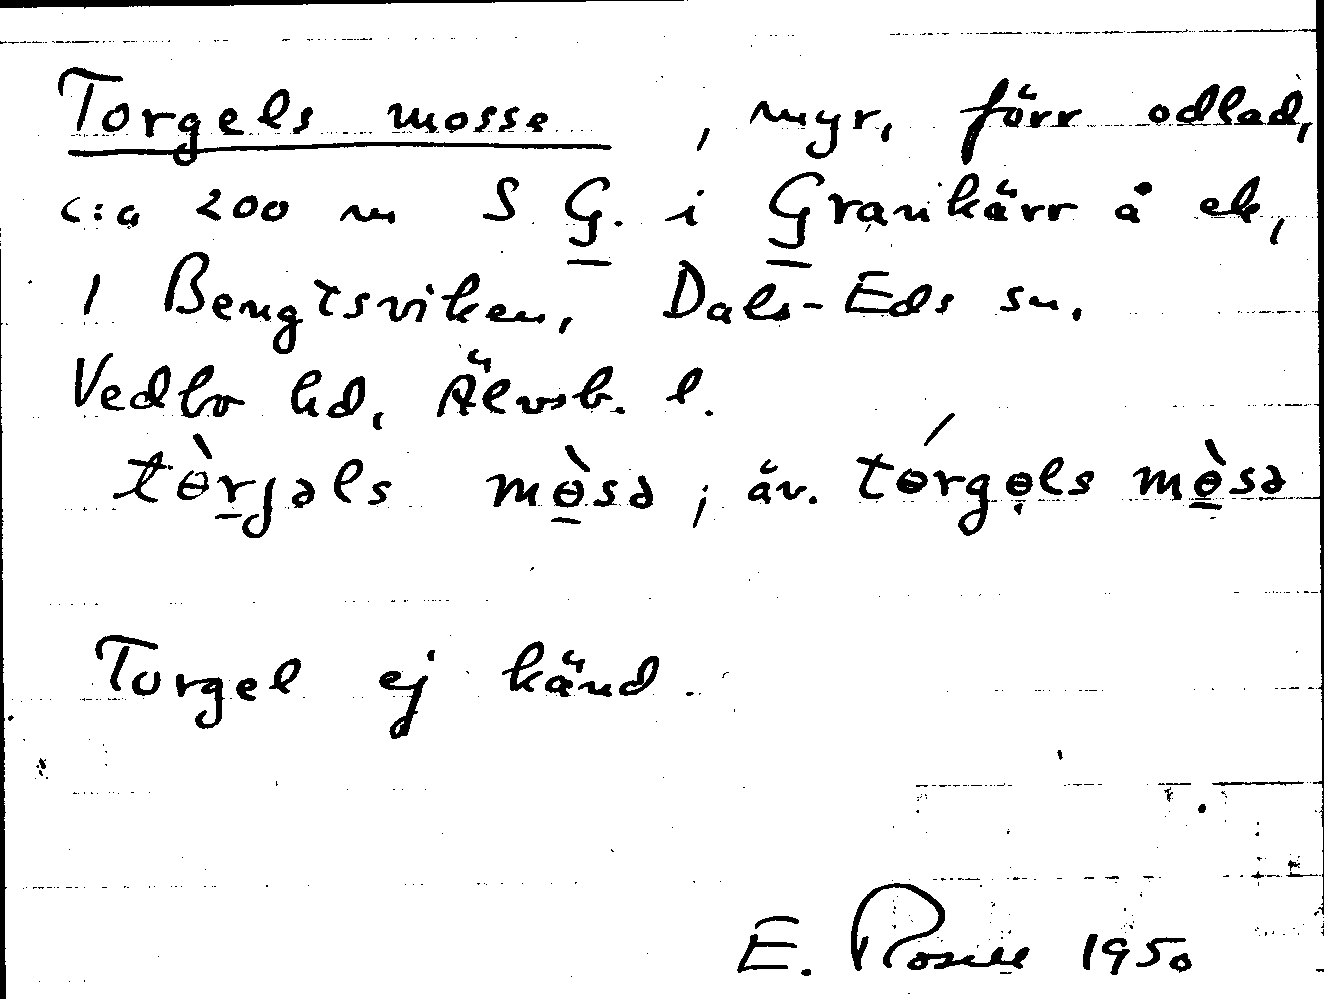 Torgels mosse, myr, förr odlad,
c:a 200 m S G. i Grankärr å ek,
1 Bengtsviken, Dals-Eds sn,
Vedbo hd, Älvsb. l.
tɵ̀rjəls mɵ̀sə; äv. tɵ́rgɵls mɵ̀sə
Torgel ej känd.
E. Rosell 1950